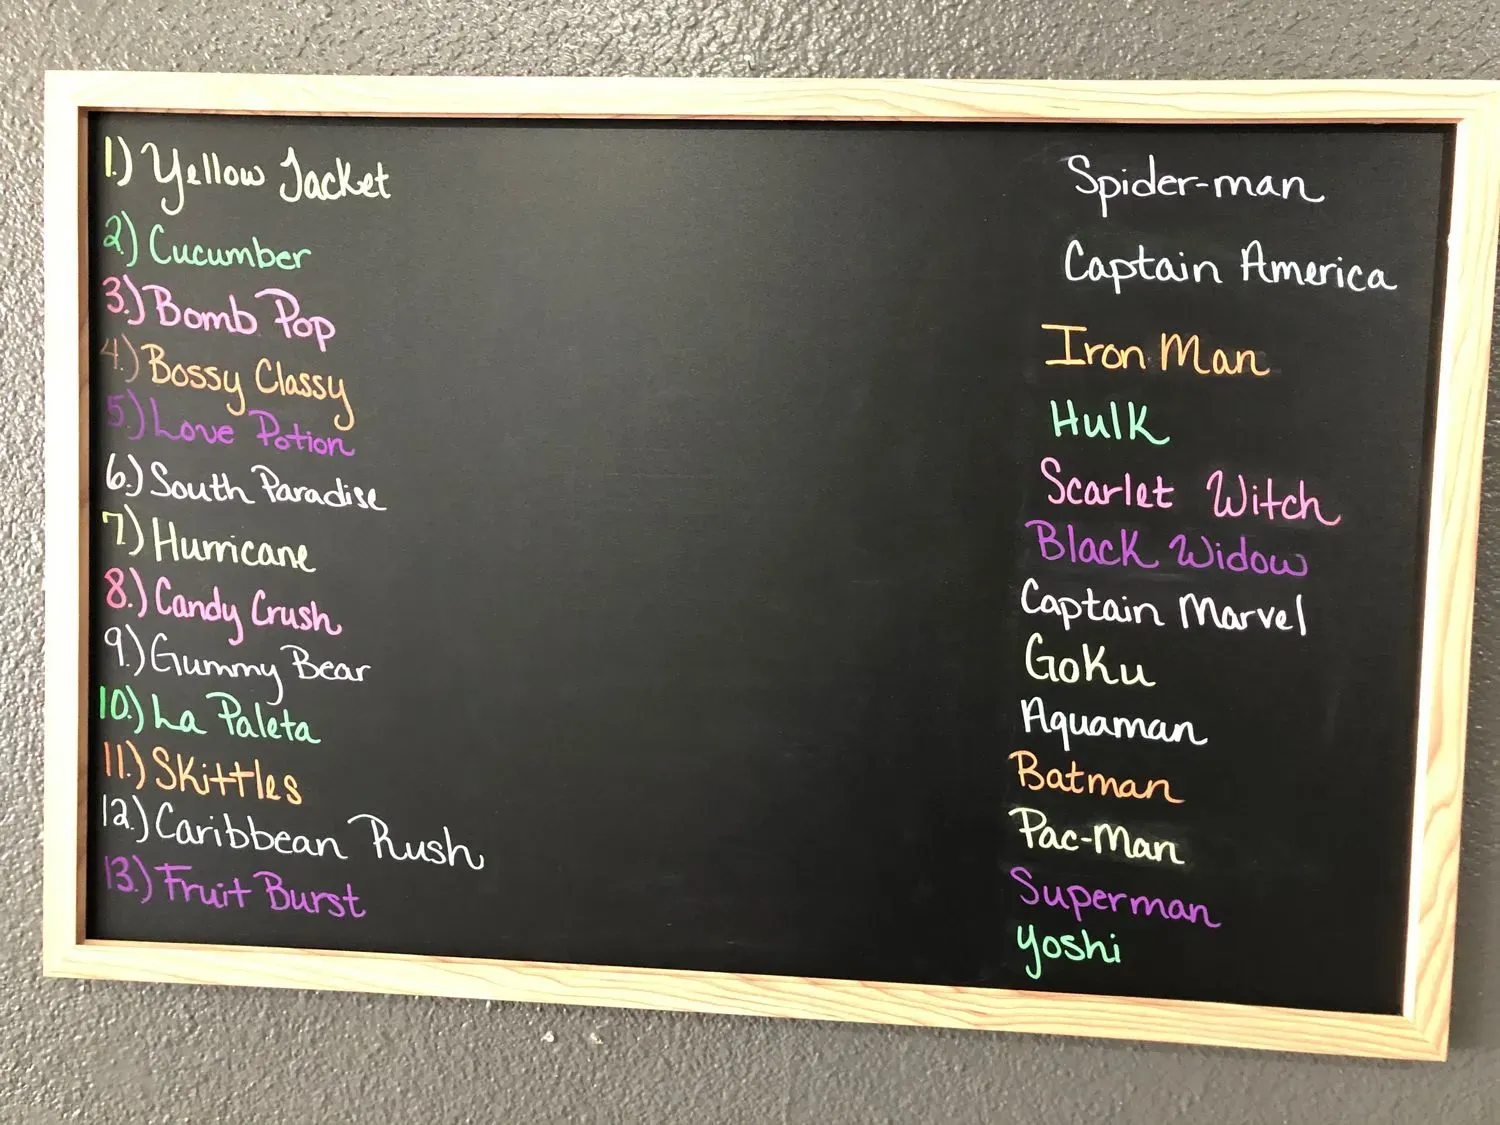 1.) Yellow Jacket
2.) Cucumber
3.) Bomb Pop
4.) Bossy Classy
5.) Love Potion
6.) South Paradise
7.) Hurricane
8.) Candy Crush
9.) Gummy Bear
10.) La Paleta
11.) Skittles
12.) Caribbean Rush
13.) Fruit Burst
Spider-man
Captain America
Iron Man
Hulk
Scarlet Witch
Black Widow
Captain Marvel
Goku
Aquaman
Batman
Pac-Man
Superman
Yoshi